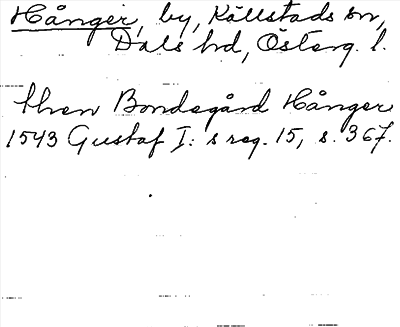 Hånger, by, Källstads sn,
Dals hd, Österg. l.
then Bondegård Hånger
1543 Gustaf I:s reg. 15, s. 367.